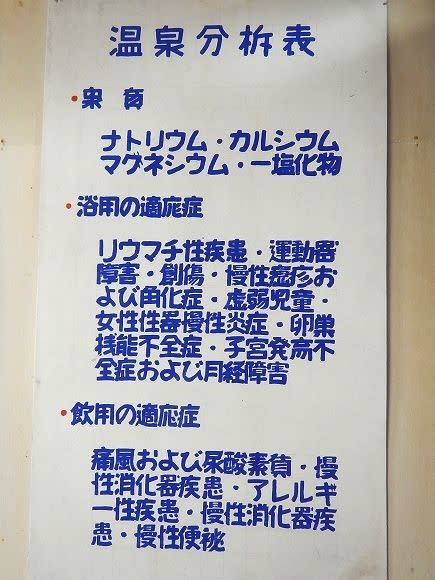 温泉分析表
・泉質
ナトリウム・カルシウム
マグネシウム・一塩化物
・浴用の適応症
リウマチ性疾患・運動器
障害・創傷・慢性湿疹お
よび角化症・虚弱児童・
女性性器慢性炎症・卵巣
機能不全症・子宮発育不
全症および月経障害
・飲用の適応症
痛風および尿酸素質・慢
性消化器疾患・アレルギ
ー性疾患・慢性消化器疾
患・慢性便秘